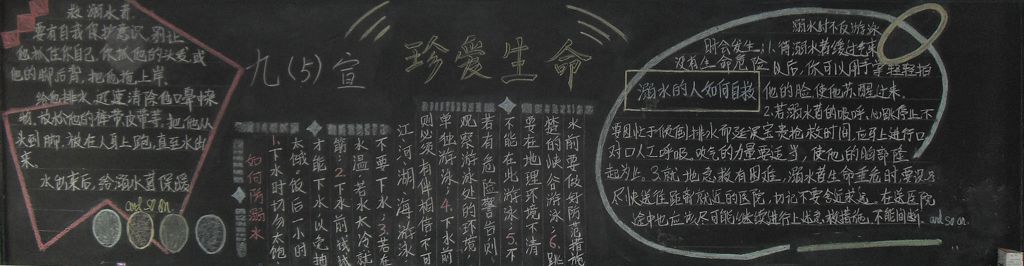 救溺水者
要有自我保护意识,别让
他抓住你自己,你抓他的头发或
他的脚后背,把他拖上岸。
给他排水,还要清除他口鼻
物,放松他的裤带皮带等,把他从
头到脚,被在人身上跑,直至水出
来。
水出来后,给溺水者保暖
and so on.
九(5)宣
珍爱生命
如何防溺水
1.下水时切勿太饱,
太饿。饭后一小时
才能下水,以免抽
筋;2.下水前试试
水温,若水太冷,就
不要下水;3.若在
江河湖海游泳
则必须有伴相伴不可
单独游泳;4.下水前
观察游泳处的环境,
若有危险警告,则
不能在此游泳;5.不
要在地理环境不清
楚的峡谷游泳;6.跳
水前要做好防范措施
溺水时不反游泳
时会发生:1.有溺水者缓过来
没有生命危险以后,你可以用手轻轻拍
溺水的人如何自救
他的脸使他苏醒过来.
2.若溺水者的呼吸、心跳停止,不
要因忙于倾倒排水而延误宝贵抢救时间,应马上进行口
对口人工呼吸,吹气的力量要适当,使他的胸部隆
起为止。3.就地急救有困难,溺水者生命垂危时要以
尽快送往距离就近的医院,切记不要舍近求远。在送医院
途中也应该尽可能继续进行上述急救措施,不能间断.
and so on.